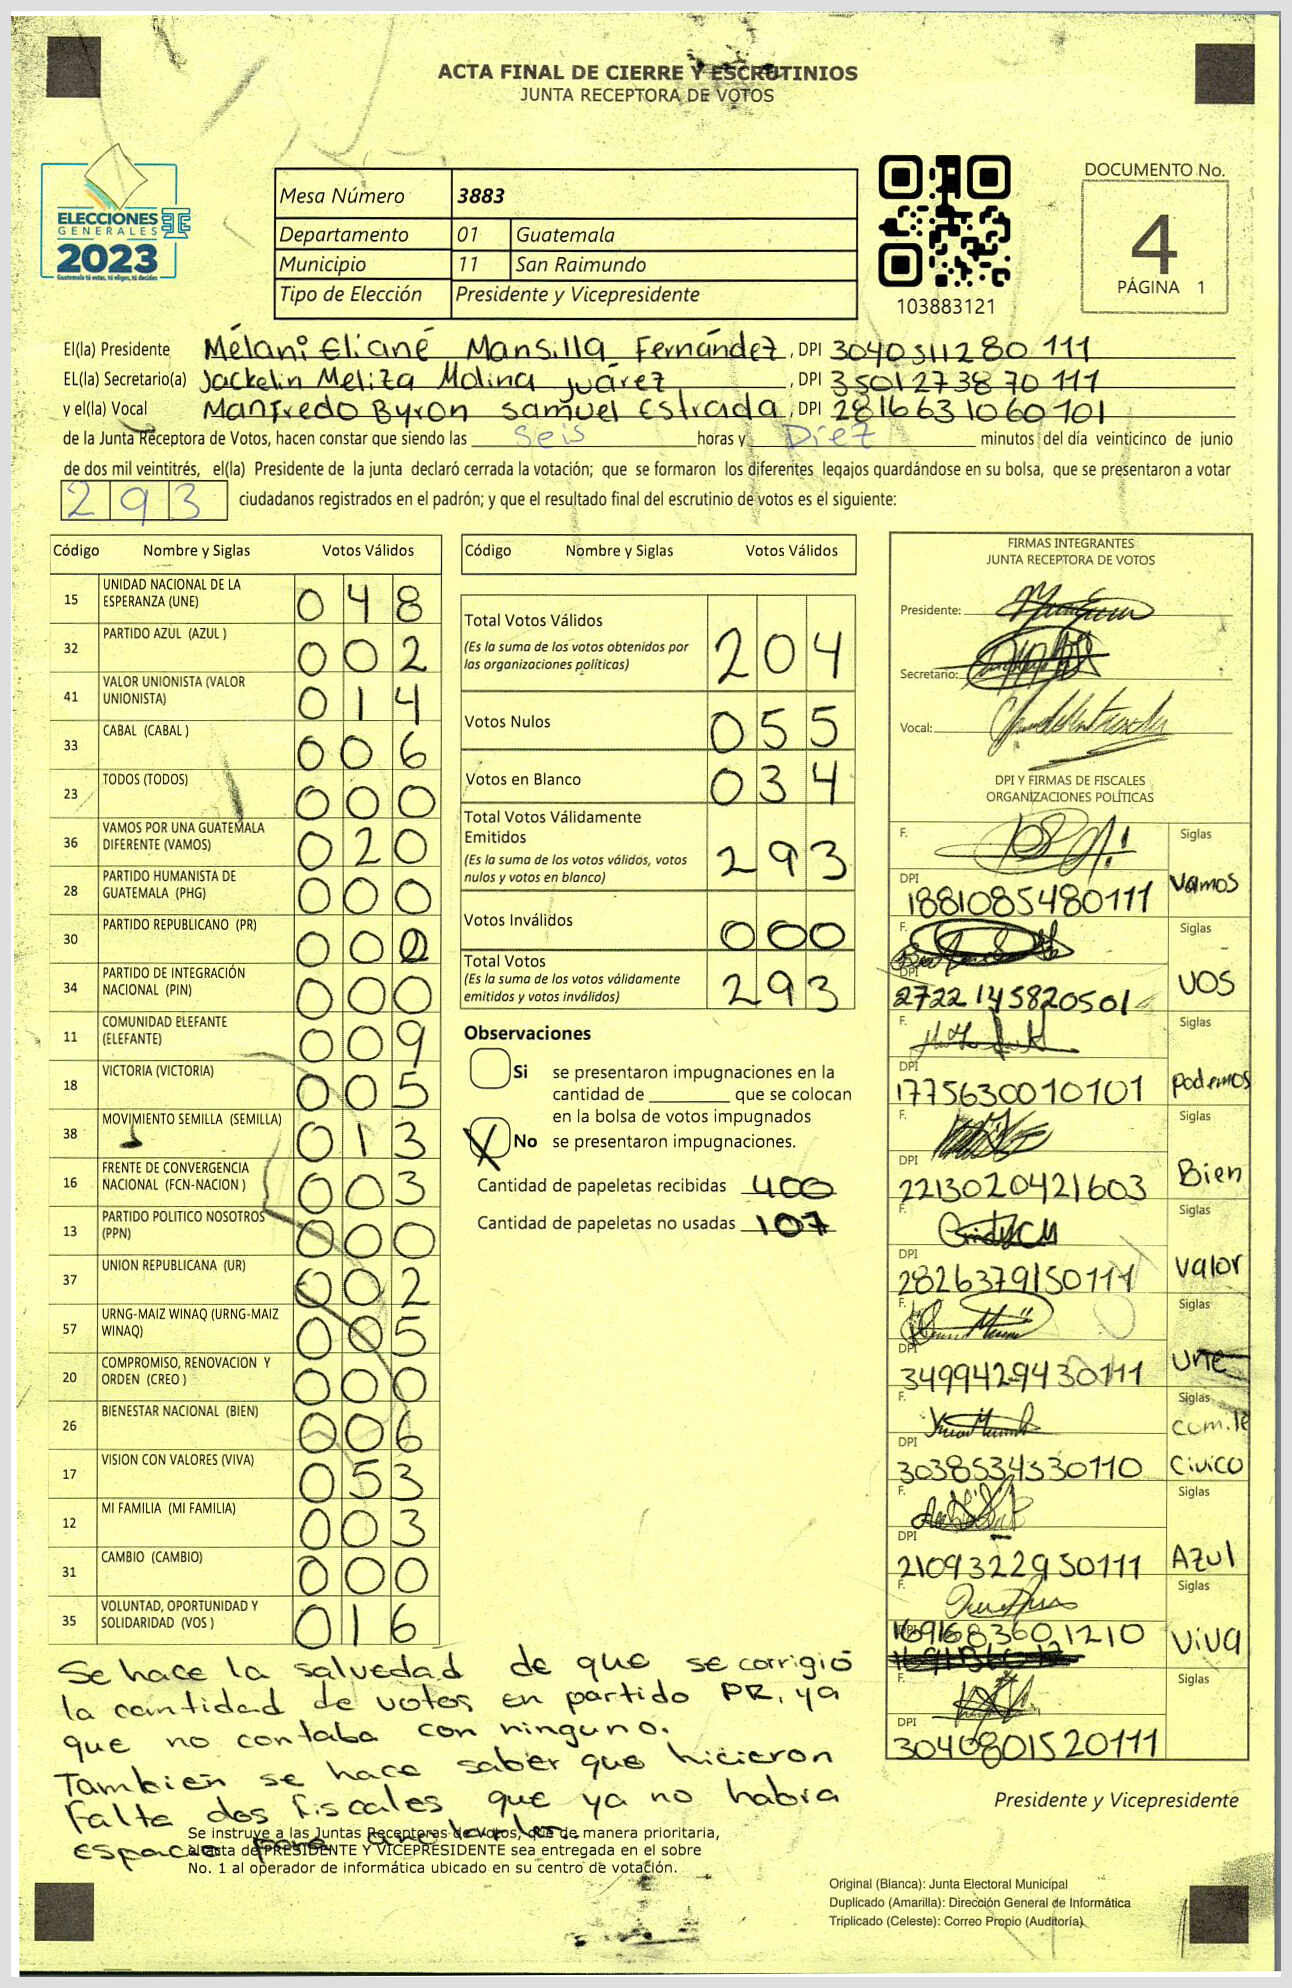 ACTA FINAL DE CIERRE Y ESCRUTINIOS
JUNTA RECEPTORA DE VOTOS
ELECCIONES
GENERALES
2023
Guatemala tú estás, tú eliges, tú decides
Mesa Número 3883
Departamento 01 Guatemala
Municipio 11 San Raimundo
Tipo de Elección Presidente y Vicepresidente
103883121
DOCUMENTO No.
4
PÁGINA 1
El(la) Presidente Mélani Eliané Mansilla Fernández, DPI 3040311280111
EL(la) Secretario(a) Jackelin Meliza Molina Juárez, DPI 3501273870111
y el(la) Vocal Manfredo Byron Samuel Estrada, DPI 2816631060101
de la Junta Receptora de Votos, hacen constar que siendo las Seis horas y Diez minutos del día veinticinco de junio
de dos mil veintitrés, el(la) Presidente de la junta declaró cerrada la votación; que se formaron los diferentes legajos guardándose en su bolsa, que se presentaron a votar
293 ciudadanos registrados en el padrón; y que el resultado final del escrutinio de votos es el siguiente:
Código Nombre y Siglas Votos Válidos
15 UNIDAD NACIONAL DE LA ESPERANZA (UNE) 048
32 PARTIDO AZUL (AZUL ) 002
41 VALOR UNIONISTA (VALOR UNIONISTA) 014
33 CABAL (CABAL ) 006
23 TODOS (TODOS) 000
36 VAMOS POR UNA GUATEMALA DIFERENTE (VAMOS) 020
28 PARTIDO HUMANISTA DE GUATEMALA (PHG) 000
30 PARTIDO REPUBLICANO (PR) 000
34 PARTIDO DE INTEGRACIÓN NACIONAL (PIN) 000
11 COMUNIDAD ELEFANTE (ELEFANTE) 009
18 VICTORIA (VICTORIA) 005
38 MOVIMIENTO SEMILLA (SEMILLA) 013
16 FRENTE DE CONVERGENCIA NACIONAL (FCN-NACION ) 003
13 PARTIDO POLITICO NOSOTROS (PPN) 000
37 UNION REPUBLICANA (UR) 002
57 URNG-MAIZ WINAQ (URNG-MAIZ WINAQ) 005
20 COMPROMISO, RENOVACION Y ORDEN (CREO ) 000
26 BIENESTAR NACIONAL (BIEN) 006
17 VISION CON VALORES (VIVA) 053
12 MI FAMILIA (MI FAMILIA) 003
31 CAMBIO (CAMBIO) 000
35 VOLUNTAD, OPORTUNIDAD Y SOLIDARIDAD (VOS ) 016
Código Nombre y Siglas Votos Válidos
Total Votos Válidos 204
(Es la suma de los votos obtenidos por
las organizaciones políticas)
Votos Nulos 055
Votos en Blanco 034
Total Votos Válidamente
Emitidos 293
(Es la suma de los votos válidos, votos
nulos y votos en blanco)
Votos Inválidos 000
Total Votos 293
(Es la suma de los votos válidamente
emitidos y votos inválidos)
Observaciones
Si se presentaron impugnaciones en la
cantidad de ________ que se colocan
en la bolsa de votos impugnados
X No se presentaron impugnaciones.
Cantidad de papeletas recibidas 400
Cantidad de papeletas no usadas 107
FIRMAS INTEGRANTES
JUNTA RECEPTORA DE VOTOS
Presidente:
Secretario:
Vocal:
DPI Y FIRMAS DE FISCALES
ORGANIZACIONES POLÍTICAS
F. Siglas
DPI 1881085480111 Vamos
F. Siglas
DPI 2722145820501 VOS
F. Siglas
DPI 1775630010101 podemos
F. Siglas
DPI 2213020421603 Bien
F. Siglas
DPI 2826379150111 valor
F. Siglas
DPI 3499429430111 une
F. Siglas
DPI 3038534530110 com.te Civico
F. Siglas
DPI 2109322950111 Azul
F. Siglas
DPI 1691683601210 VIVA
F. Siglas
DPI 3040801520111
Se hace la salvedad de que se corrigió
la cantidad de votos en partido PR, ya
que no contaba con ninguno.
Tambien se hace saber que hicieron
Falta dos fiscales que ya no habra
espacio para anotarlos.
Se instruye a las Juntas Receptoras de Votos, que de manera prioritaria,
el acta de PRESIDENTE Y VICEPRESIDENTE sea entregada en el sobre
No. 1 al operador de informática ubicado en su centro de votación.
Presidente y Vicepresidente
Original (Blanca): Junta Electoral Municipal
Duplicado (Amarilla): Dirección General de Informática
Triplicado (Celeste): Correo Propio (Auditoría)